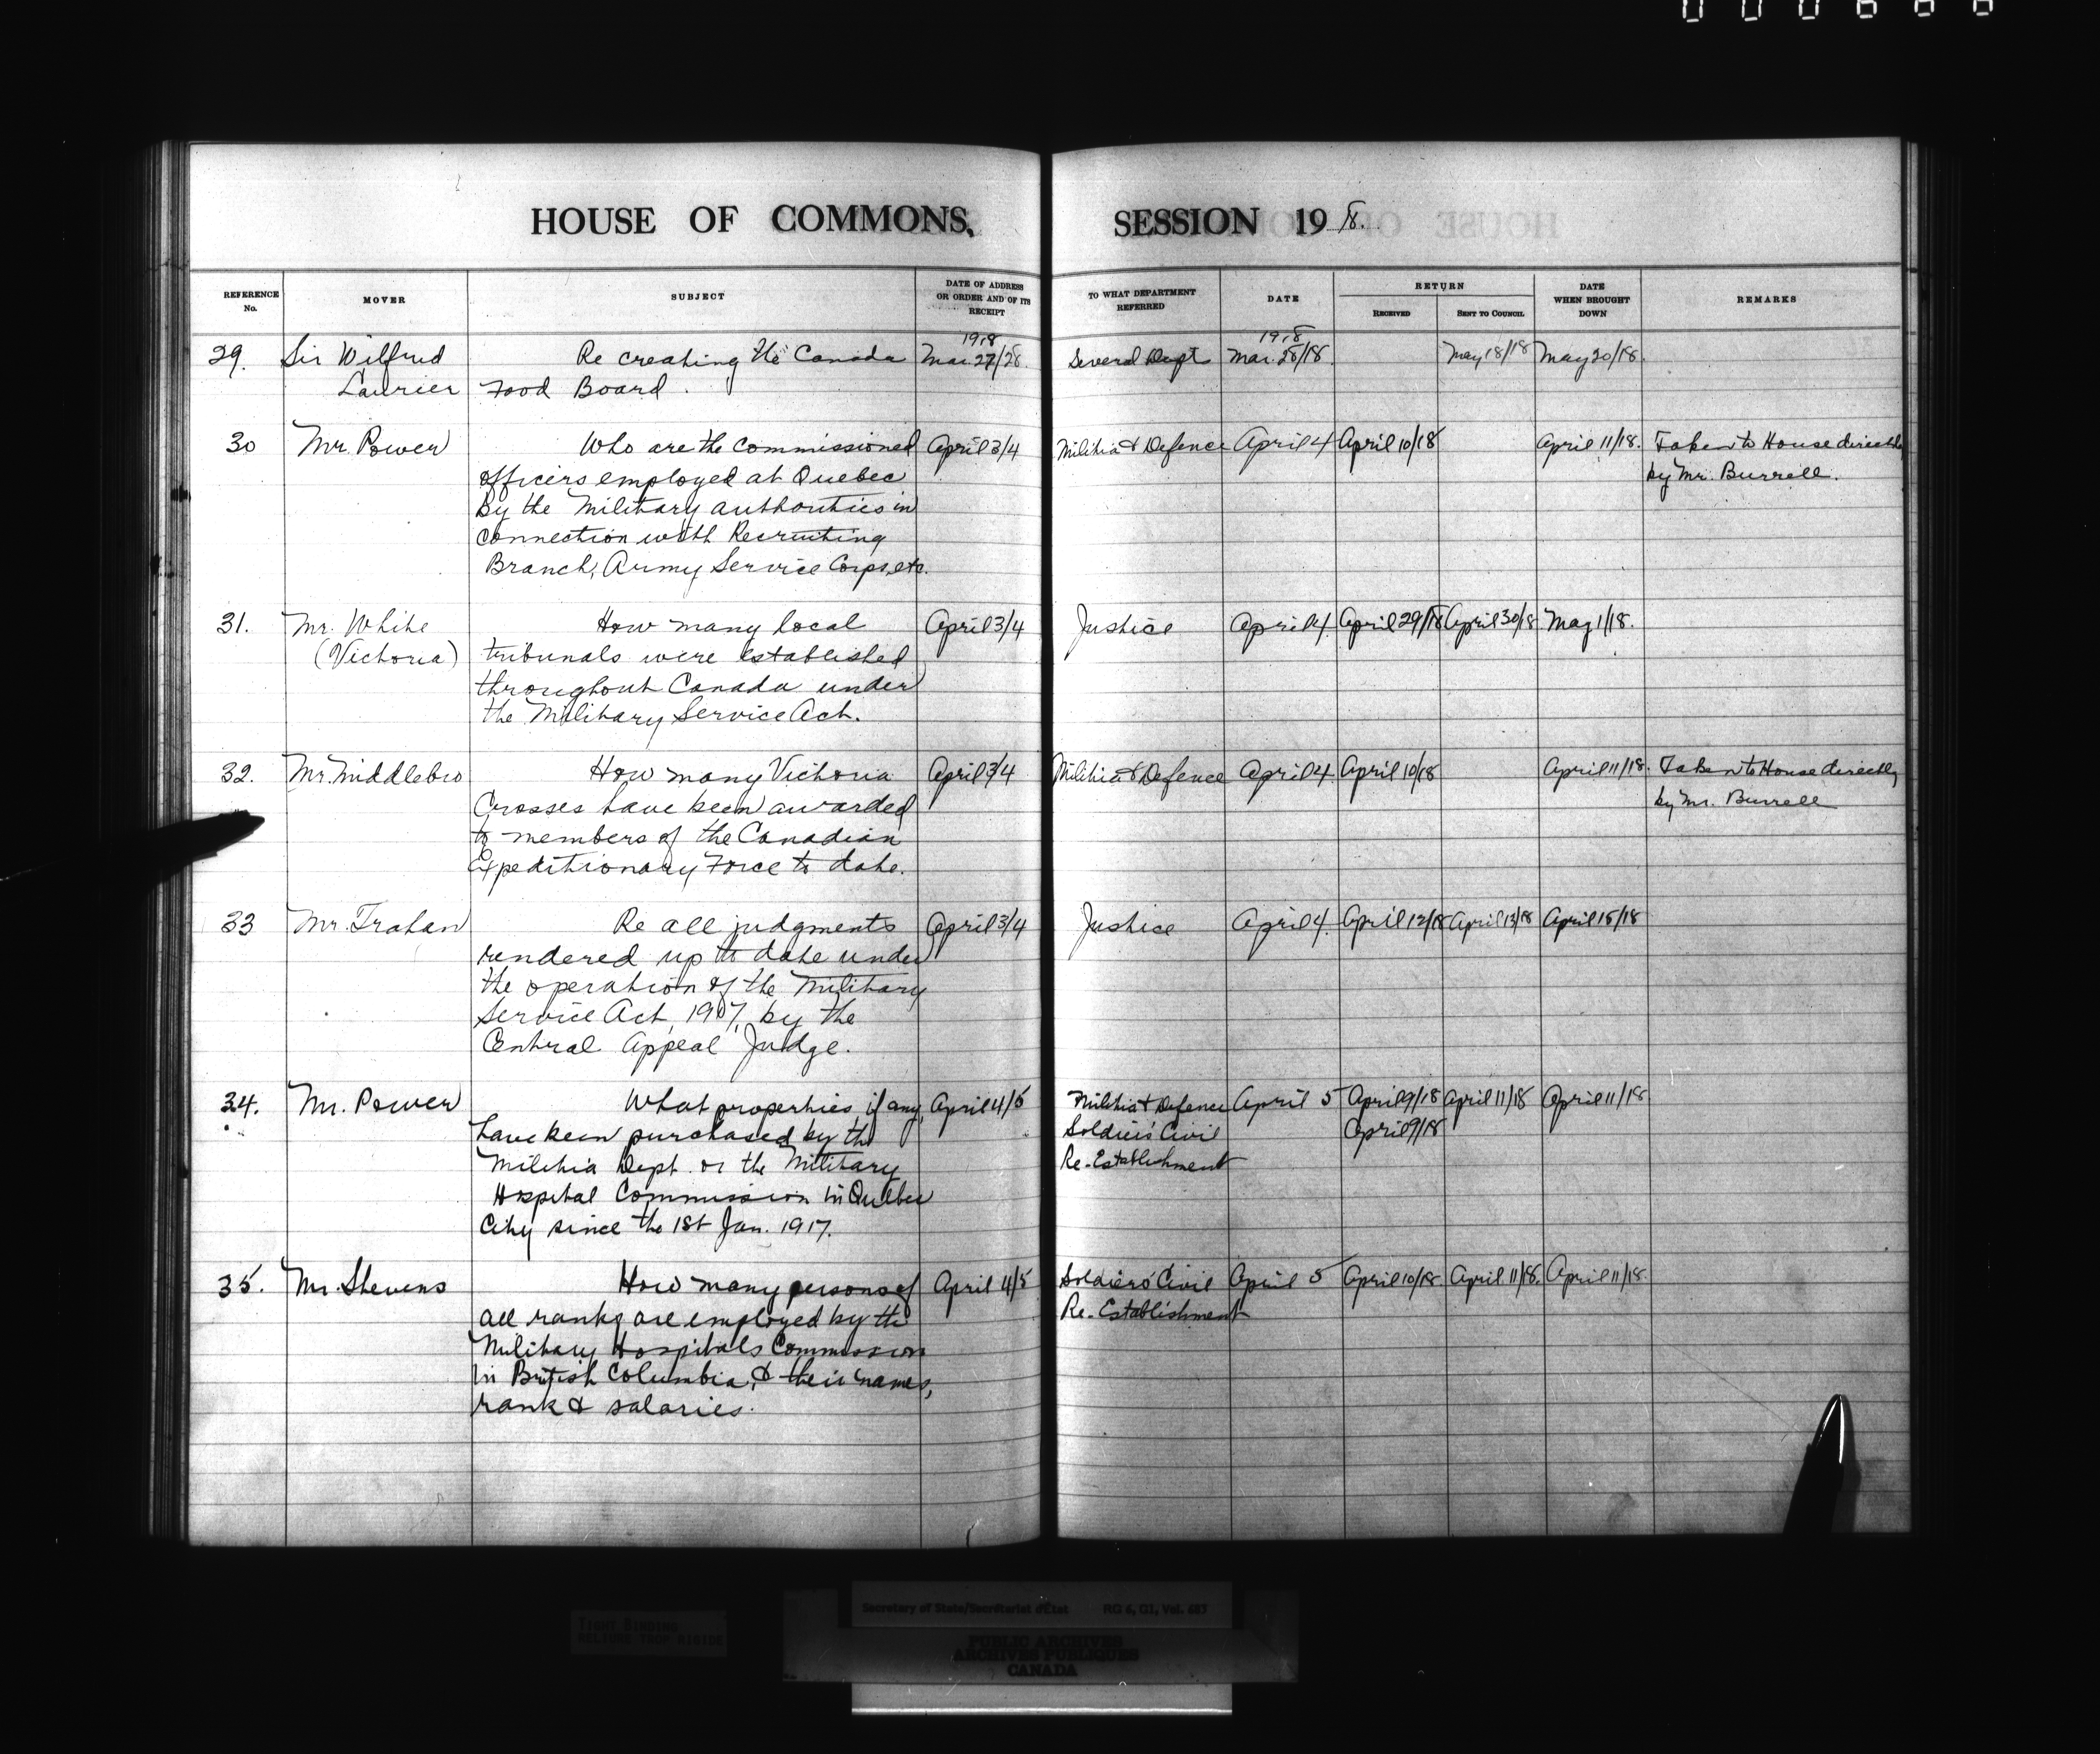 000666
HOUSE OF COMMONS,
SESSION 1918.
REFERENCE No.
MOVER
SUBJECT
DATE OF ADDRESS OR ORDER AND OF ITS RECEIPT
TO WHAT DEPARTMENT REFERRED
DATE
RETURN
RECEIVED
SENT TO COUNCIL
DATE WHEN BROUGHT DOWN
REMARKS
1918
1918
29. Sir Wilfrud Re creating the Canada Mar. 27/28. Several Depts Mar. 28/18. May 18/18 May 20/18.
Laurier Food Board.
30 Mr. Power Who are the commissioned April 3/4 Militia & Defence April 4 April 10/18 April 11/18. Taken to House directly
officers employed at Quebec by Mr. Burrell.
by the Military authorities in
connection with Recruiting
Branch, Army Service Corps, etc.
31. Mr. White How many local April 3/4 Justice April 4. April 29/18 April 30/18 May 1/18.
(Victoria) tribunals were established
throughout Canada under
the Military Service Act.
32. Mr. Middlebro How many Victoria April 3/4 Militia & Defence April 4. April 10/18 April 11/18. Taken to House directly
Crosses have been awarded by Mr. Burrell
to members of the Canadian
Expeditionary Force to date.
33 Mr. Trahan Re all judgments April 3/4 Justice April 4. April 12/18 April 13/18 April 15/18
rendered up to date under
the operation of the Military
Service Act, 1917, by the
Central Appeal Judge.
34. Mr. Power What properties, if any, April 4/5 Militia & Defence April 5 April 9/18 April 11/18 April 11/18
have been purchased by the Soldiers' Civil April 9/18
Militia Dept. or the Military Re-Establishment
Hospital Commission in Quebec
City since the 1st Jan. 1917.
35. Mr. Stevens How many persons of April 4/5 Soldiers' Civil April 5 April 10/18 April 11/18. April 11/18.
all ranks are employed by the Re-Establishment
Military Hospitals Commission
in British Columbia, & their names,
rank & salaries.
TIGHT BINDING
RELIURE TROP RIGIDE
Secretary of State/Secrétariat d'État RG 6, G1, Vol. 685
PUBLIC ARCHIVES
ARCHIVES PUBLIQUES
CANADA